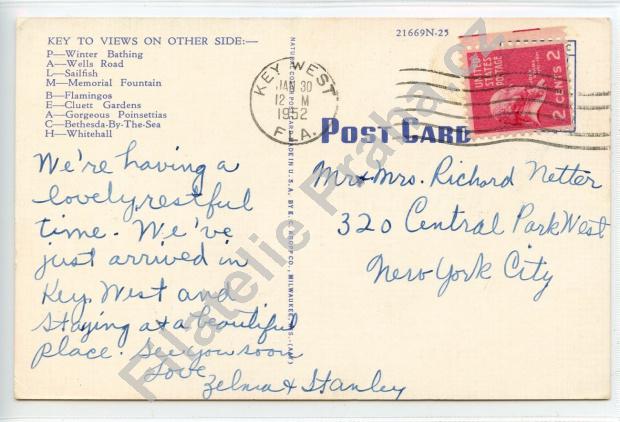 KEY TO VIEWS ON OTHER SIDE:—
P—Winter Bathing
A—Wells Road
L—Sailfish
M—Memorial Fountain
B—Flamingos
E—Cluett Gardens
A—Gorgeous Poinsettias
C—Bethesda-By-The-Sea
H—Whitehall
We're having a
lovely, restful
time. We've
just arrived in
Key West and
staying at a beautiful
place. See you soon
Love
Zelma & Stanley
NATURE COLOR POST CARD MADE IN U.S.A. BY E. C. KROPP CO., MILWAUKEE, WIS.
21669N-25
KEY WEST
JAN 30
12 M
1952
FLA.
UNITED
STATES
POSTAGE
2 CENTS 2
POST CARD
Mr & Mrs. Richard Netter
320 Central Park West
New York City
Filatelie Praha.cz